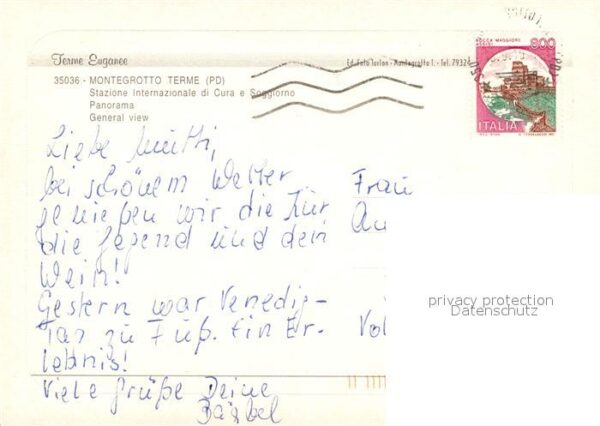 Terme Euganee
35036 - MONTEGROTTO TERME (PD)
Stazione Internazionale di Cura e Soggiorno
Panorama
General view
Ed. Foto Turlon - Montegrotto T. - Tel. 79324
ROCCA MAGGIORE
800
ITALIA
Liebe Mutti,
bei schönem Wetter
genießen wir die Kur
die Gegend und den
Wein!
Gestern war Venedig-
Tag zu Fuß. Ein Er-
lebnis!
Viele Grüße Deine
Bärbel
Frau
privacy protection
Datenschutz